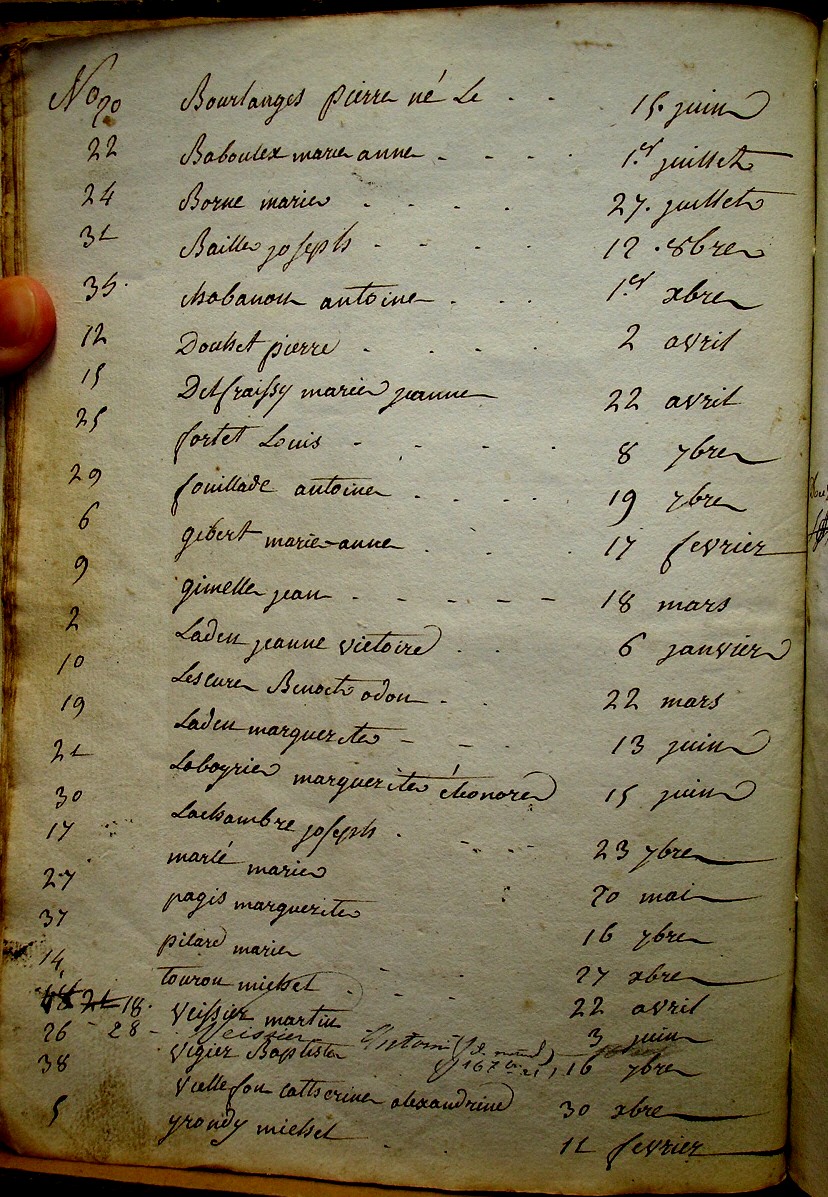 No 20 Bourlanges pierre né Le . . . 15. juin
22 Baboulex marie anne . - - . 1.er juillet
24 Borne marie . . . . 27. juillet
31 Baille joseph . . . . 12 . 8bre
35. chabanon antoine . . . 1.er xbre
12 Douhet pierre . . . . 2 avril
15 Delfraissy marie jeanne 22 avril
25 fortet Louis - - - . . 8 7bre
29 fouillade antoine . . . . 19 7bre
6 gibert marie-anne . . . 17 fevrier
9 gimelle jean . - - - - - 18 mars
2 Laden jeanne victoire . . 6 janvier
10 Lescure Benoct odon . . 22 mars
19 Laden marguerite - - . 13 juin
21 Laboyrie marguerite éléonore 15 juin
30 Lachambre joseph . - - - 23 7bre
17 marlé marie 20 mai
27 pagis marguerite 16 7bre
37 pilard marie 27 xbre
14. touron michel . . . 22 avril
18. veissier martin 3 juin
26 - 28 - Veissier Antoine
vigier Baptiste 16 7bre
38 vielle fon catherine alexandrine 30 xbre
5 yrondy michel . . 11 fevrier